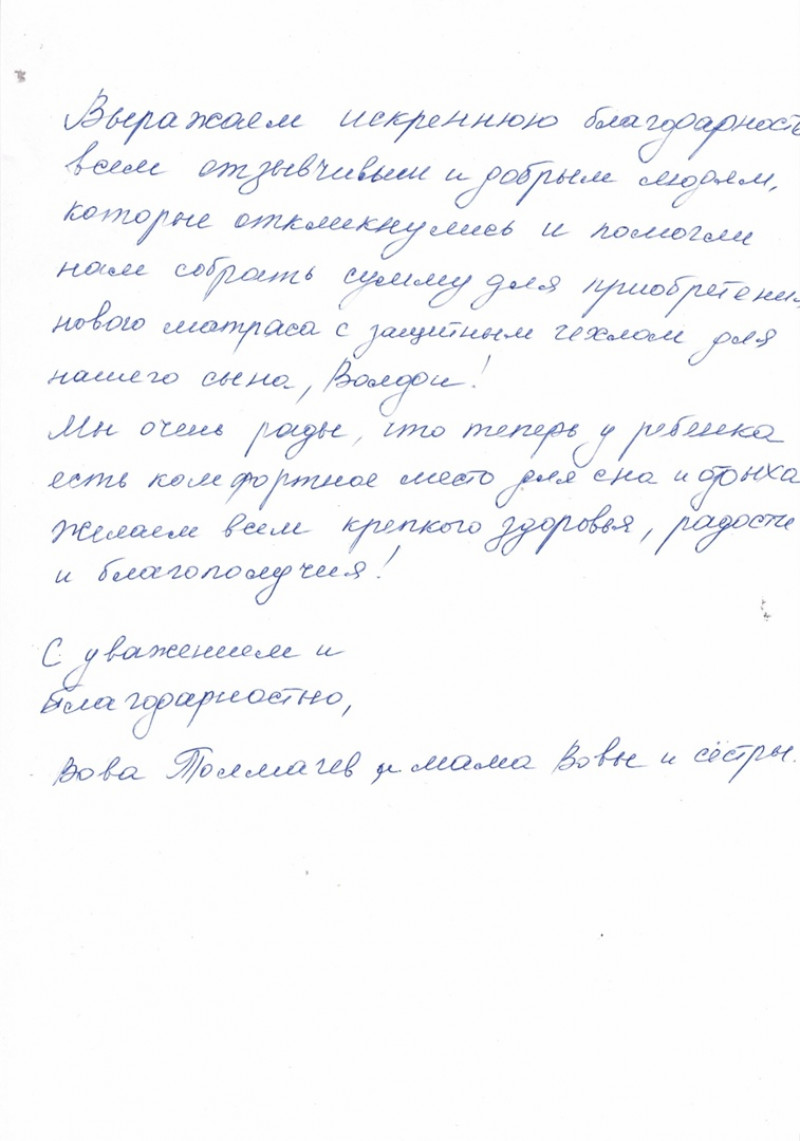 Выражаем искреннюю благодарность
всем отзывчивым и добрым людям,
которые откликнулись и помогли
нам собрать сумму для приобретения
нового матраса с защитным чехлом для
нашего сына, Володи!
Мы очень рады, что теперь у ребенка
есть комфортное место для сна и отдыха
Желаем всем крепкого здоровья, радости
и благополучия!
С уважением и
благодарностью,
Вова Толмачев и мама Вовы и сёстры.